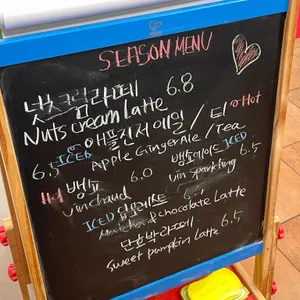 SEASON MENU
넛크림라떼 6.8
Nuts cream latte
ICED 애플진저에일 / 티 HOT
6.5 Apple Ginger Ale / Tea
뱅쇼 6.0 뱅쇼에이드 ICED
vin chaud vin sparkling 6.5
ICED
Matcha & chocolate Latte
단호박라떼 6.5
Sweet pumpkin Latte